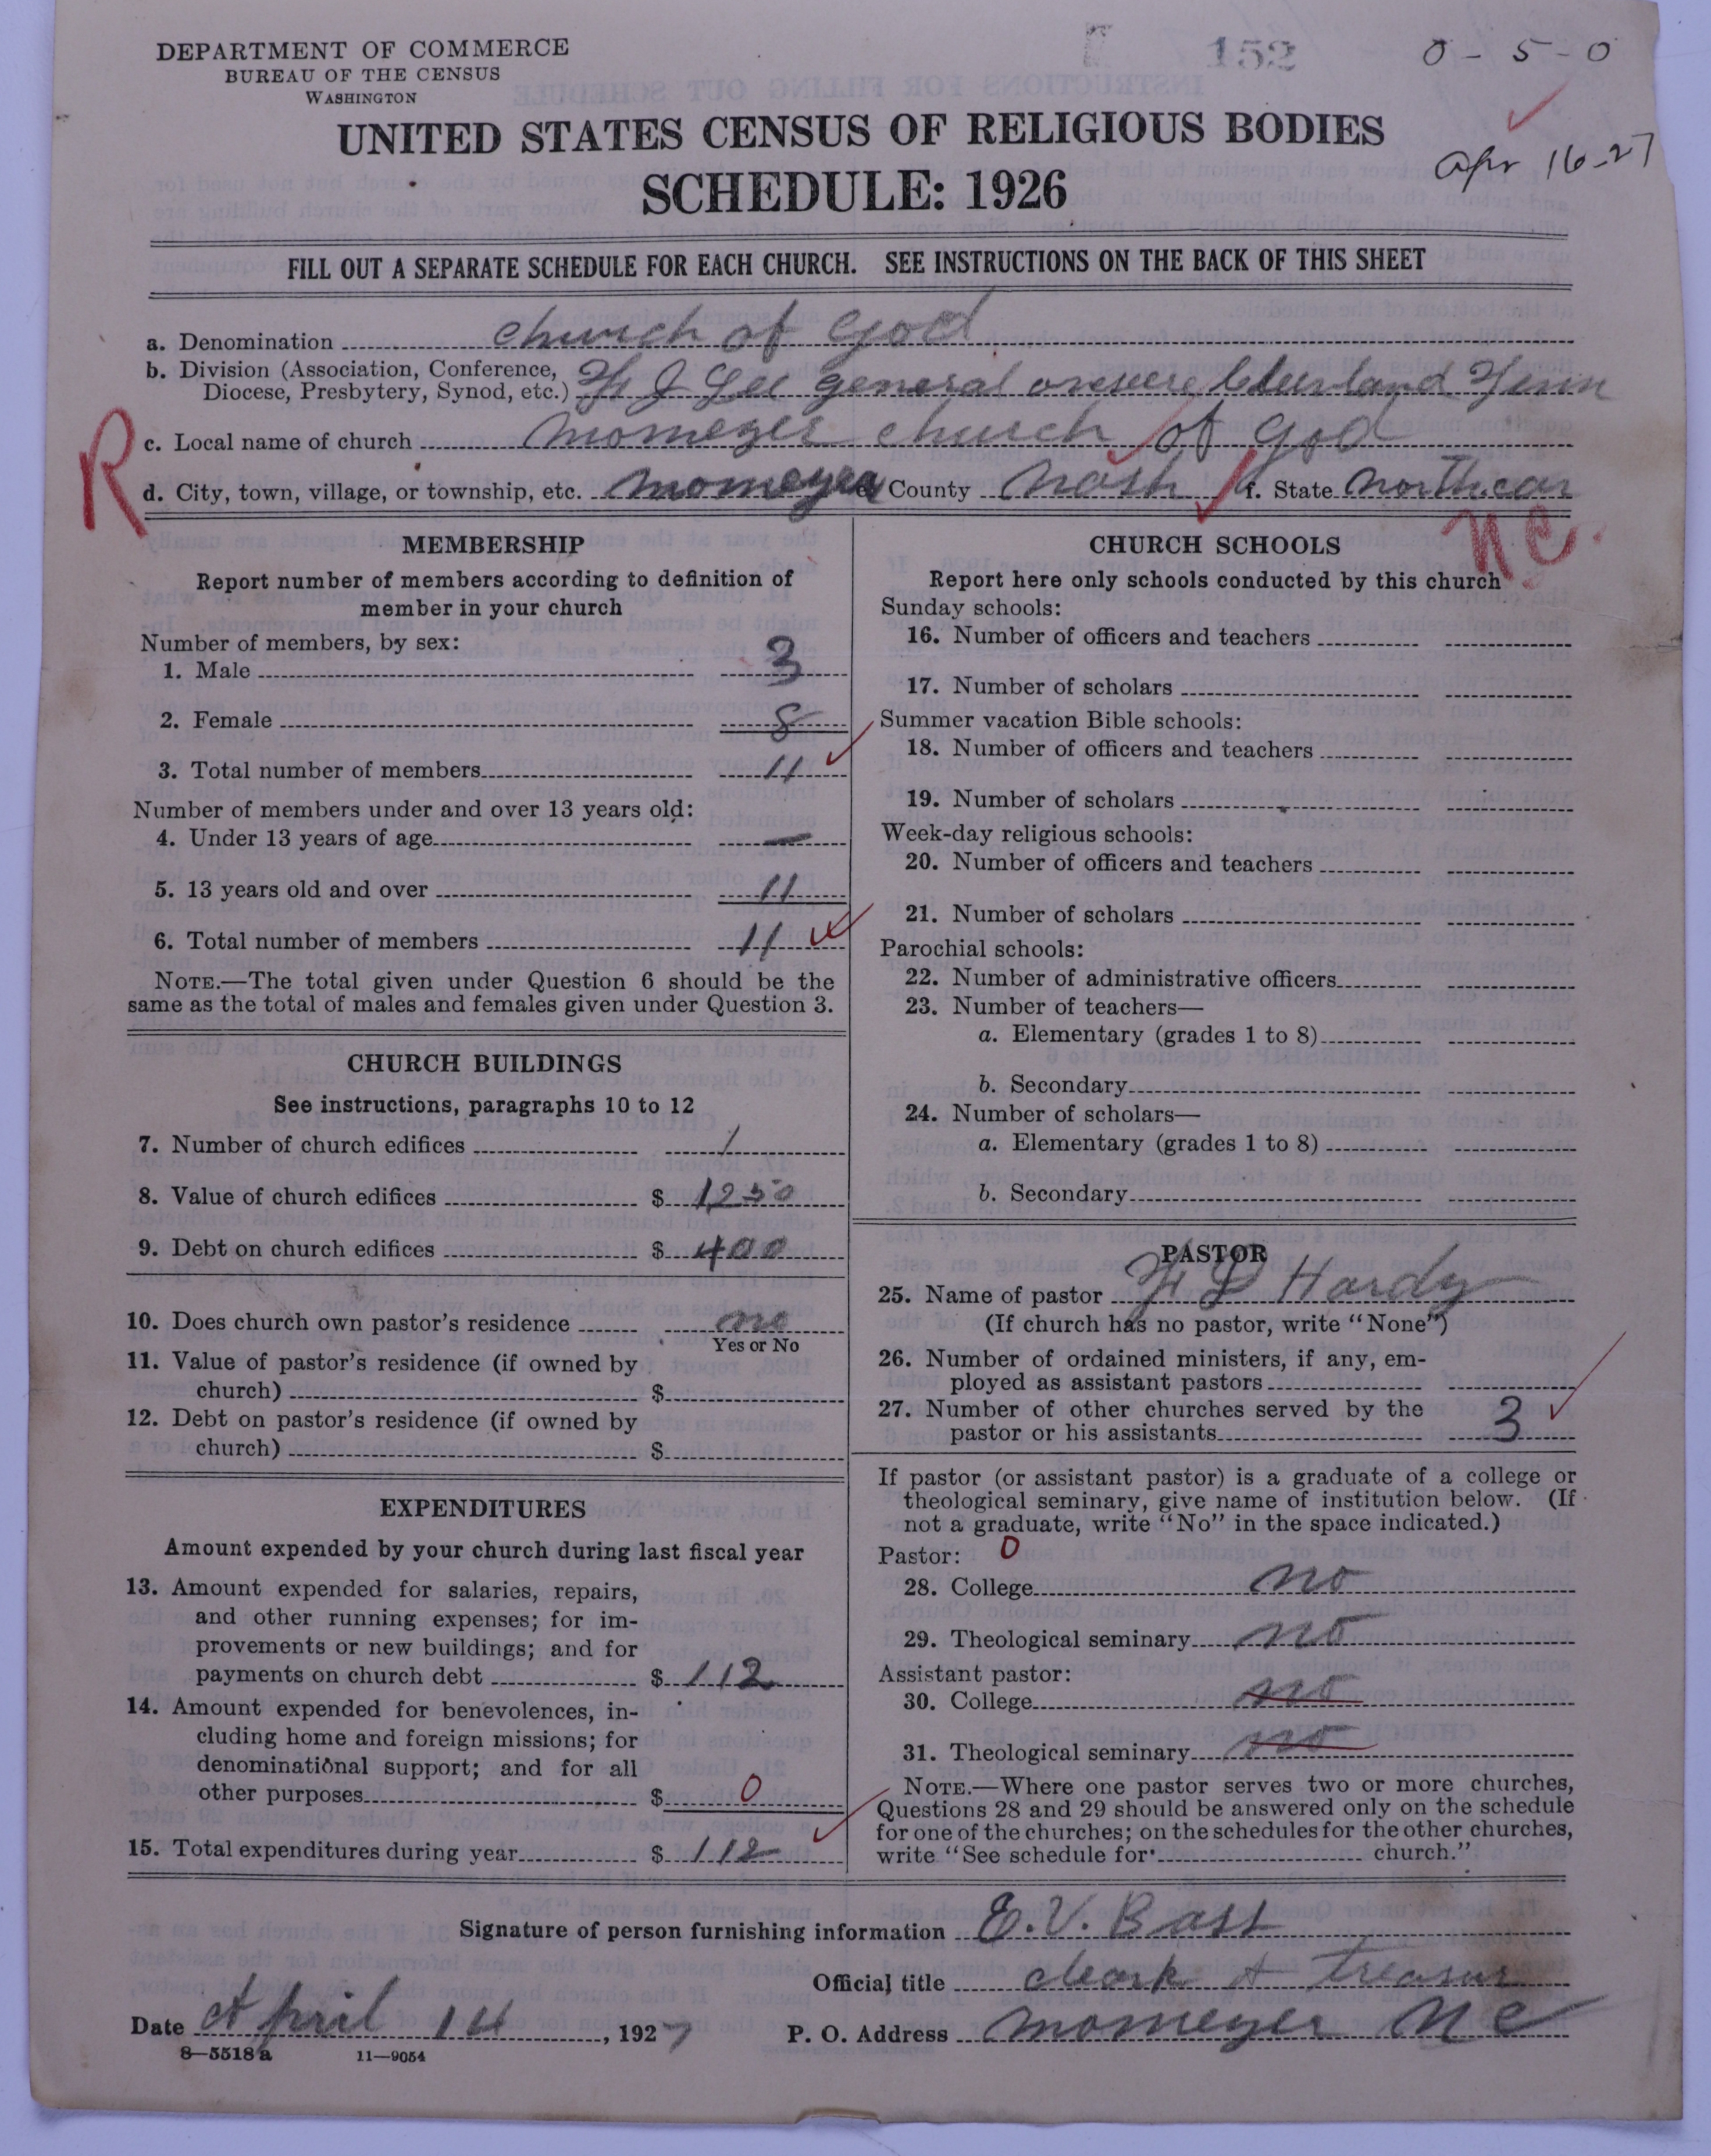 DEPARTMENT OF COMMERCE
BUREAU OF THE CENSUS
WASHINGTON
152
0 - 5 - 0
UNITED STATES CENSUS OF RELIGIOUS BODIES
SCHEDULE: 1926
Apr 16-27
FILL OUT A SEPARATE SCHEDULE FOR EACH CHURCH. SEE INSTRUCTIONS ON THE BACK OF THIS SHEET
a. Denomination church of god
b. Division (Association, Conference,
Diocese, Presbytery, Synod, etc.) F J Lee general
R
c. Local name of church momeyer church of god
d. City, town, village, or township, etc. momeyer County Nash f. State north.car
NC.
MEMBERSHIP
Report number of members according to definition of
member in your church
Number of members, by sex:
1. Male 3
2. Female 8
3. Total number of members 11
Number of members under and over 13 years old:
4. Under 13 years of age —
5. 13 years old and over 11
6. Total number of members 11
NOTE.—The total given under Question 6 should be the
same as the total of males and females given under Question 3.
CHURCH BUILDINGS
See instructions, paragraphs 10 to 12
7. Number of church edifices 1
8. Value of church edifices $ 1250
9. Debt on church edifices $ 400
10. Does church own pastor's residence no
Yes or No
11. Value of pastor's residence (if owned by
church) $
12. Debt on pastor's residence (if owned by
church) $
EXPENDITURES
Amount expended by your church during last fiscal year
13. Amount expended for salaries, repairs,
and other running expenses; for im-
provements or new buildings; and for
payments on church debt $ 112
14. Amount expended for benevolences, in-
cluding home and foreign missions; for
denominational support; and for all
other purposes $ 0
15. Total expenditures during year $ 112
CHURCH SCHOOLS
Report here only schools conducted by this church
Sunday schools:
16. Number of officers and teachers
17. Number of scholars
Summer vacation Bible schools:
18. Number of officers and teachers
19. Number of scholars
Week-day religious schools:
20. Number of officers and teachers
21. Number of scholars
Parochial schools:
22. Number of administrative officers
23. Number of teachers—
a. Elementary (grades 1 to 8)
b. Secondary
24. Number of scholars—
a. Elementary (grades 1 to 8)
b. Secondary
PASTOR
25. Name of pastor Hardy
(If church has no pastor, write "None")
26. Number of ordained ministers, if any, em-
ployed as assistant pastors
27. Number of other churches served by the
pastor or his assistants 3
If pastor (or assistant pastor) is a graduate of a college or
theological seminary, give name of institution below. (If
not a graduate, write "No" in the space indicated.)
Pastor: 0
28. College no
29. Theological seminary no
Assistant pastor:
30. College no
31. Theological seminary no
NOTE.—Where one pastor serves two or more churches,
Questions 28 and 29 should be answered only on the schedule
for one of the churches; on the schedules for the other churches,
write "See schedule for church."
Signature of person furnishing information E. V. Bass
Official title cleark & treasur
Date April 14, 1927 P. O. Address momeyer NC
8—5518 a 11—9054